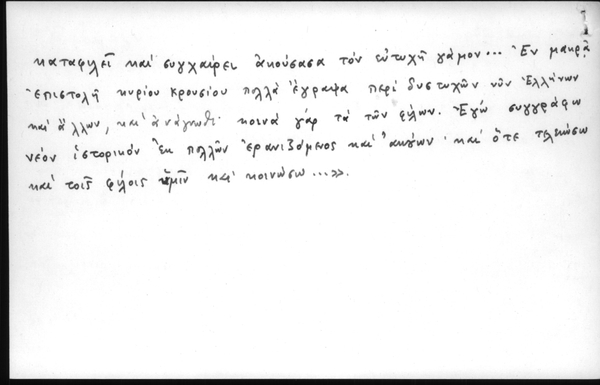 καταφιλεῖ καὶ συγχαίρει ἀκούσασα τὸν εὐτυχῆ γάμον... Ἐν μακρᾷ
ἐπιστολῇ κυρίου Κρουσίου πολλὰ ἔγραψα περὶ δυστυχῶν νῦν Ἑλλήνων
καὶ ἄλλων, καὶ ἀνάγνωθι· κοινὰ γὰρ τὰ τῶν φίλων. Ἐγὼ συγγράφω
νέον ἱστορικὸν ἐκ πολλῶν ἐρανιζόμενος καὶ ἀκούων· καὶ ὅτε τελειώσω
καὶ τοῖς φίλοις ὑμῖν καὶ κοινώσω...».